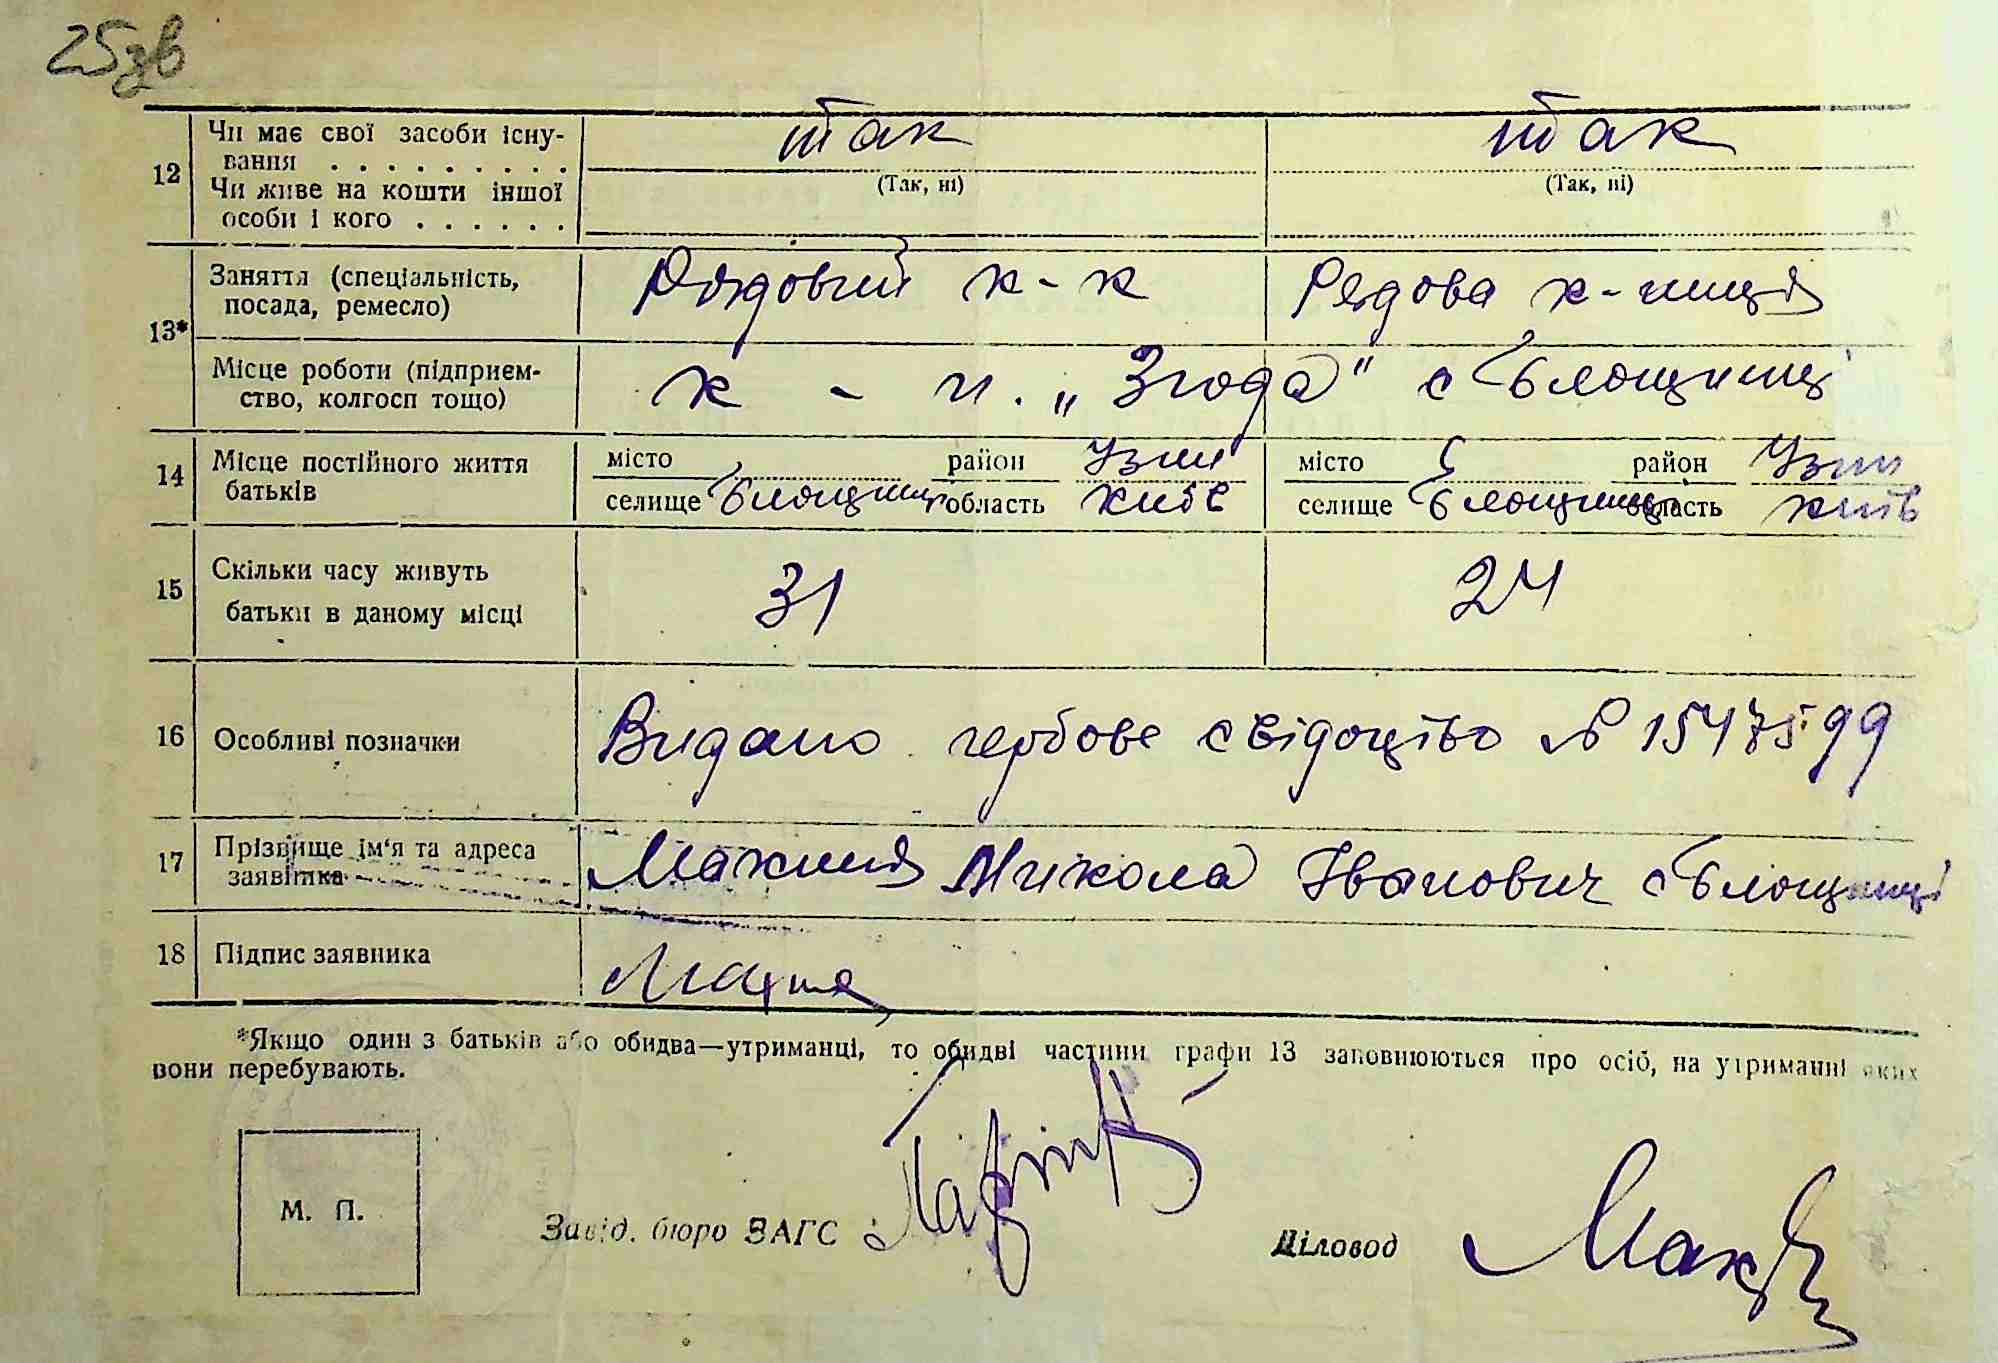 25зв
12 Чи має свої засоби існу-
вання . . . . . . . . . так так
(Так, ні) (Так, ні)
Чи живе на кошти іншої
особи і кого . . . . . .
13* Заняття (спеціальність, Рядовий к-к Рядова к-ниця
посада, ремесло)
Місце роботи (підприєм- к - п. „Згода" с Блощинці
ство, колгосп тощо)
14 Місце постійного життя місто район Узин місто район Узин
батьків селище Блощинці область Київ селище Блощинці область Київ
15 Скільки часу живуть 31 24
батьки в даному місці
16 Особливі позначки Видано гербове свідоцтво № 1547599
17 Прізвище ім'я та адреса Микола Іванович с Блощинці
заявника
18 Підпис заявника
*Якщо один з батьків або обидва—утриманці, то обидві частини графи 13 заповнюються про осіб, на утриманні яких
вони перебувають.
М. П.
Завід. бюро ЗАГС Діловод